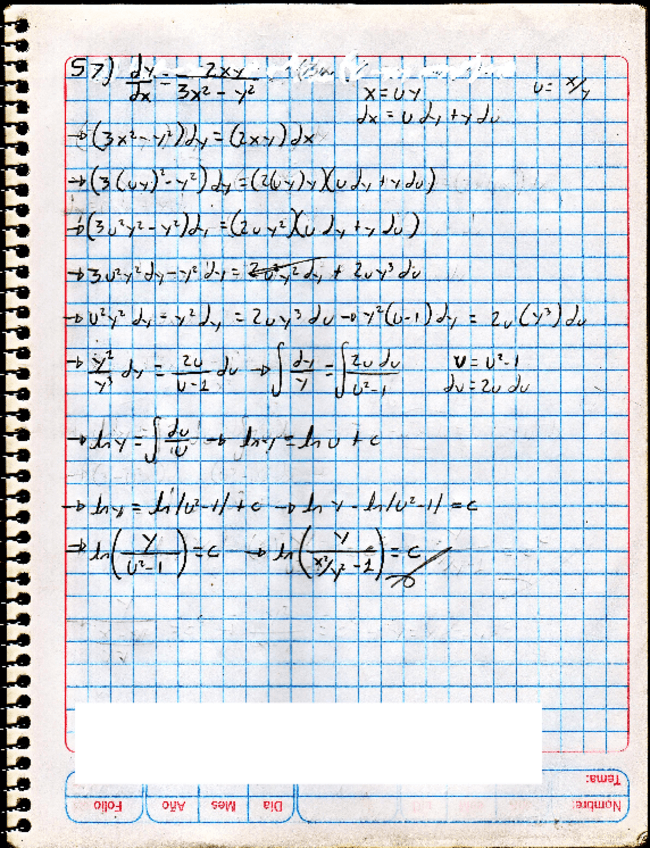 57) dy/dx = 2xy/(3x² - y²)
x = uy
dx = u dy + y du
u = x/y
→ (3x² - y²) dy = (2xy) dx
→ (3(uy)² - y²) dy = (2(uy)y)(u dy + y du)
→ (3u²y² - y²) dy = (2uy²)(u dy + y du)
→ 3u²y² dy - y² dy = 2u²y² dy + 2uy³ du
→ u²y² dy - y² dy = 2uy³ du → y²(u-1) dy = 2u(y³) du
→ y²/y³ dy = 2u/(u-1) du → ∫ dy/y = ∫ 2u du/(u²-1)
v = u²-1
dv = 2u du
→ ln y = ∫ dv/v → ln y = ln v + c
→ ln y = ln|u²-1| + c → ln y - ln|u²-1| = c
→ ln(y/(u²-1)) = c → ln(y/(x²/y² - 1)) = c
Tema:
Nombre:
Dia Mes Año Folio